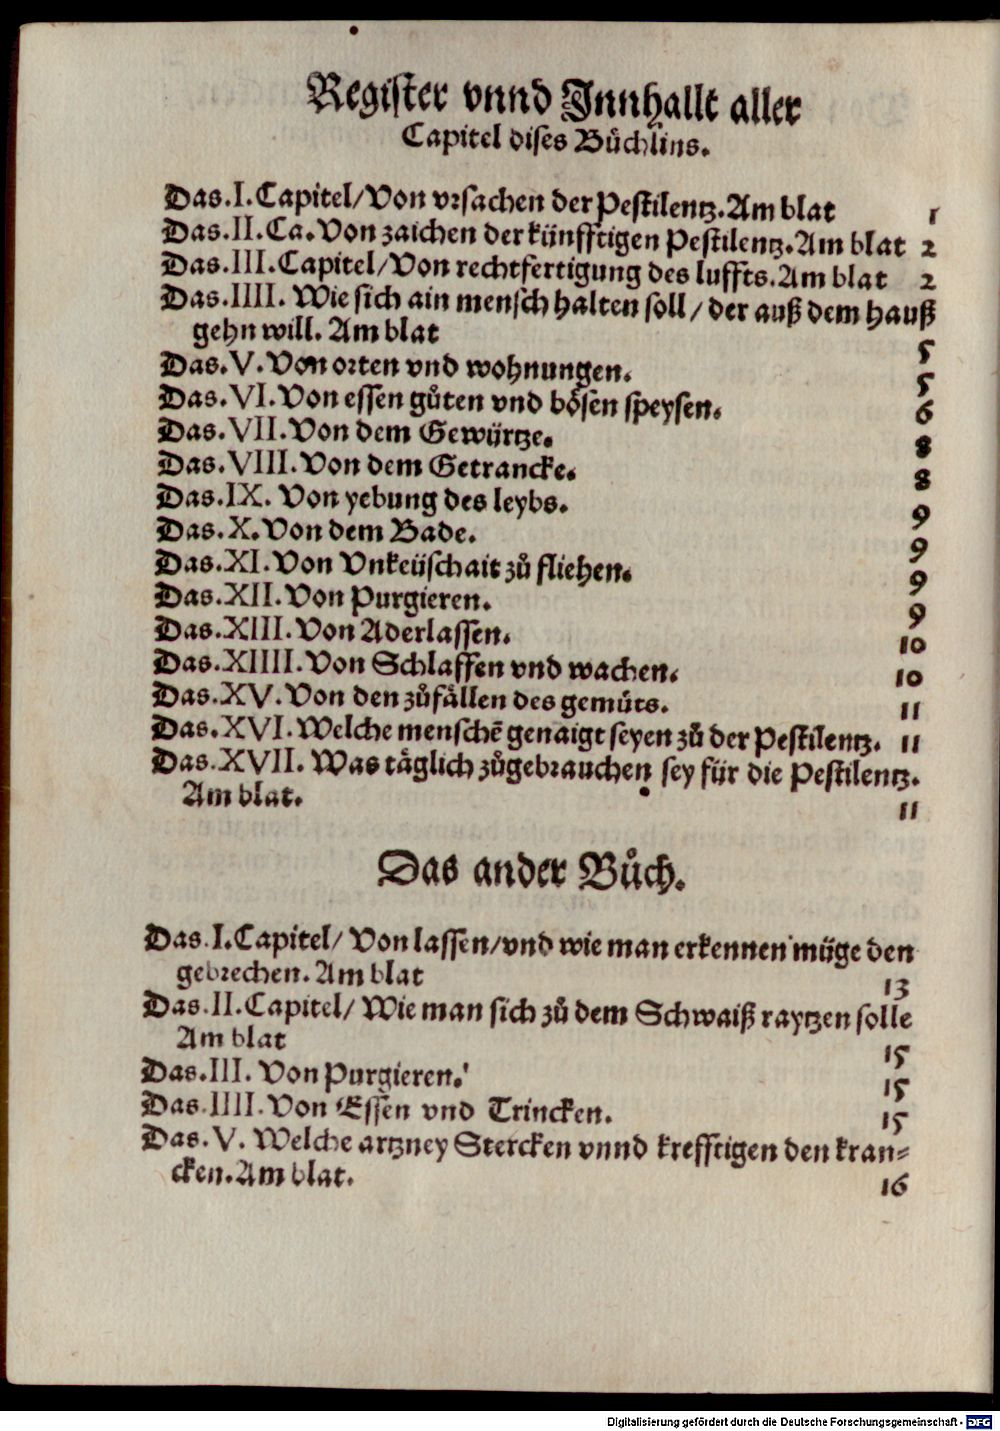 Register vnnd Jnnhallt aller
Capitel dises Bůchlins.
Das.I.Capitel/Von vrsachen der Pestilentz.Am blat 1
Das.II.Ca.Von zaichen der künfftigen Pestilentz.Am blat 2
Das.III.Capitel/Von rechtfertigung des luffts.Am blat 2
Das.IIII. Wie sich ain mensch halten soll/der auß dem hauß
gehn will. Am blat 5
Das.V.Von orten vnd wohnungen. 5
Das.VI.Von essen gůten vnd bösen speysen. 6
Das.VII.Von dem Gewürtze. 8
Das.VIII.Von dem Getrancke. 8
Das.IX. Von yebung des leybs. 9
Das.X.Von dem Bade. 9
Das.XI.Von Vnkeüschait zů fliehen. 9
Das.XII.Von Purgieren. 9
Das.XIII.Von Aderlassen. 10
Das.XIIII.Von Schlaffen vnd wachen. 10
Das.XV.Von den zůfällen des gemüts. 11
Das.XVI.Welche menschē genaigt seyen zů der Pestilentz. 11
Das.XVII. Was täglich zůgebrauchen sey für die Pestilentz.
Am blat. 11
Das ander Bůch.
Das.I.Capitel/ Von lassen/vnd wie man erkennen müge den
gebrechen.Am blat 13
Das.II.Capitel/ Wie man sich zů dem Schwaiß raytzen solle
Am blat 15
Das.III. Von Purgieren. 15
Das.IIII.Von Essen vnd Trincken. 15
Das.V. Welche artzney Stercken vnnd krefftigen den kran-
cken.Am blat. 16
Digitalisierung gefördert durch die Deutsche Forschungsgemeinschaft - DFG